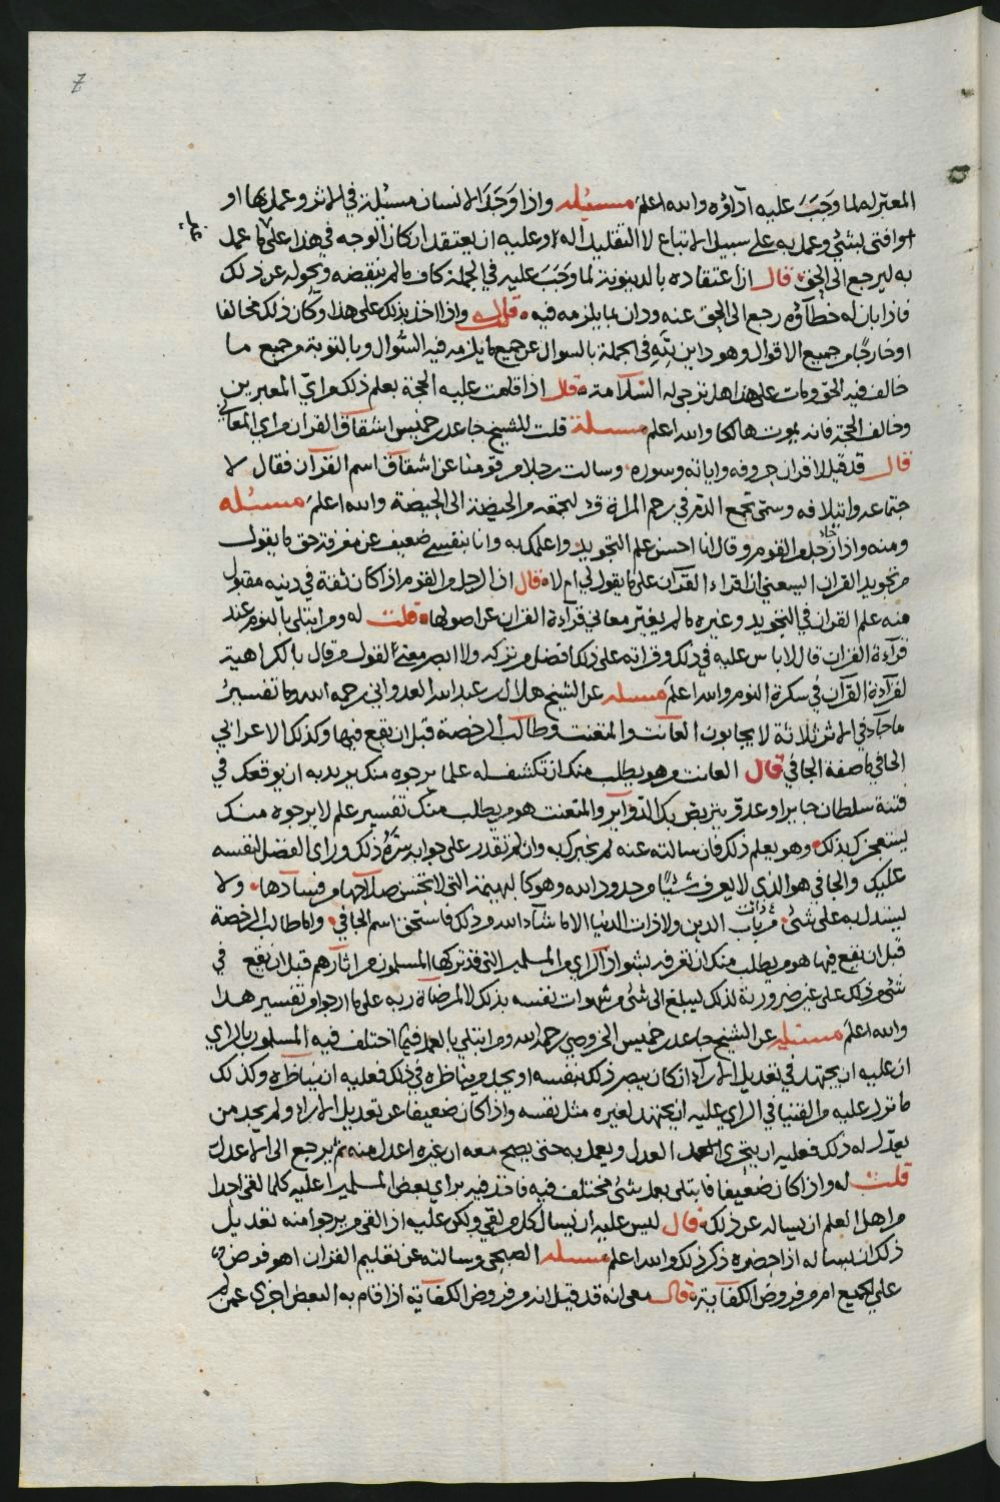 7
المعتبر له لما وجب عليه اداؤه والله اعلم مسئله واذا وجد الانسان مسئلة في الاثر وعمل بها او
او افتى بشئ وعمل به على سبيل الاتباع لا التقليد اله او عليه ان يعتقد ان كان الوجه في هذا على ما عمل
به ليرجع الى الحق قال ان اعتقاده بالدينونة لما وجب عليه في الجملة كاف ما لم ينقضه وتحوله عن ذلك
فاذا بان له خطاؤه رجع الى الحق عنه ودان بما يلزمه فيه قلت واذا اخذ بذلك على هذا وكان ذلك مخالفا
او خارجا من جميع الاقوال وهو داين لله في الجملة بالسوال عن جميع ما يلزمه فيه السوال وبالتوبة من جميع ما
خالف فيه الحق ومات على هذا هل ترجى له السلامة قال اذا قامت عليه الحجة بعلم ذلك من اي المعبرين
وخالف الحجة فانه يموت هالكا والله اعلم مسئلة قلت للشيخ جاعد بن خميس اشتقاق القران من اي المعاني
قال قد قيل لاقتران حروفه واياته وسوره وسالت رجلا من قومنا عن اشقاق اسم القرآن فقال لا
جتماعه وائتلافه وسمي تجمع الدم في رحم المراة قرؤ لتجمعه من الحيضة الى الحيضة والله اعلم مسئله
ومنه واذا جاء رجل من القوم وقال انا احسن علم التجويد واعلمك به وانا بنفسي ضعيف عن معرفة حق ما يقول
من تجويد القران ايسعني ان اقراء القرآن على ما يقول لي ام لا قال اذا الرجل من القوم اذا كان ثقة في دينه مقبول
منه علم القران في التجويد وغيره ما لم يغير معاني قرآءة القران عن اصولها قلت له ومن ابتلي بالنوم عند
قرآءة القران قال لا باس عليه في ذلك وقراته على ذلك افضل من تركه ولا ابصر معنى القول من قال بالكراهية
لقرآءة القرآن في سكرة النوم والله اعلم مسئله عن الشيخ هلال بن عبدالله العدواني رحمه الله وما تفسير
ما جاء في الاثر ثلاثة لا يجابون العانت والمتعنت وطالب الرخصة قبل ان يقع فيها وكذلك الاعرابي
الجافي ما صفة الجافي قال العانت هو يطلب منك ان تكشف له علما يرجوه منك يريد به ان يوقعك في
فتنة سلطان جابر او عدو يتربص بك الدواير والمتعنت هو من يطلب منك تفسير علم لا يرجوه منك
يستعجزك بذلك وهو يعلم ذلك فان سالته عنه لم يخبرك به وان لم تقدر على جوابه سره ذلك وراى الفضل لنفسه
عليك والجافي هو الذي لا يعرف شيئا من حدود الله وهو كالبهيمة التي لا تحس صلاحها من فسادها ولا
يستدل به على شئ من باب الدين ولا ذات الدنيا الا ما شاء الله من ذلك فاستحق اسم الجافي واما طالب الرخصة
قبل ان يقع فيها هو من يطلب منك ان تعرفه بشواذ آرآي المسلمين التي قد تركها المسلمون من اثارهم قبل ان يقع في
شئ من ذلك على غير ضرورية لذلك ليبلغ الى شئ من شهوات نفسه بذلك لا لمرضاة ربه على ما ارجو من تفسير هذا
والله اعلم مسئله عن الشيخ جاعد بن خميس الخروصي رحمه الله ومن ابتلي بالعمل فيما اختلف فيه المسلمون بالراي
ان عليه ان يجتهد في تعديل الارآء ان كان يبصر ذلك بنفسه او يجد من يناظره في ذلك فعليه ان يناظره وكذلك
ما نزل عليه من الفتيا في الراي عليه ان يجتهد لغيره مثل نفسه واذا كان ضعيفا عن تعديل الاراء ولم يجد من
يعدل له ذلك فعليه ان يتحرى العدل ويعمل به حتى يصح معه ان غيره اعدل منه ثم يرجع الى الاعدل
قلت له واذا كان ضعيفا فابتلي بعمل شئ مختلف فيه فاخذ فيه براي بعض المسلمين اعليه كلما لقي احدا
من اهل العلم ان يساله عن ذلك قال ليس عليه ان يسال كل من لقي ولكن عليه اذا لقي من يرجو منه تعديل
ذلك ان يساله اذا حضره ذكر ذلك والله اعلم مسئله الصبحي وسالته عن تعليم القران اهو فرض
على الجميع ام من فروض الكفاية قال معي انه قد قيل انه من فروض الكفاية اذا قام به البعض اجزى عمن لم